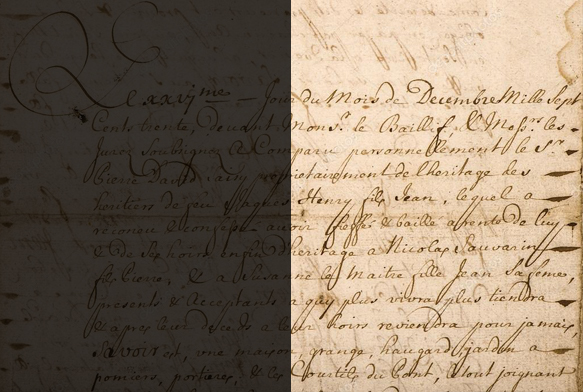 Le xxvj.me Jour du Mois de Decembre Mille Sept
Cents trente, devant Mons.r le Baillif, & Mess.rs les
Jurez soubsignez A Comparu personnellement le S.r
Pierre David proprietairement de l'heritage des
heritiers de feu Henry fils Jean, lequel a
reconeu & confessé avoir fieffé & baillé a rente de luy
& de ses hoirs, enfin d'heritage a Nicolas Sauvarin
fils Pierre, & a Suzanne le Maitre fille Jean sa feme,
presents & Acceptants a quy plus vivra plus tiendra
& apres leur deceds a leur hoirs reviendra pour jamais,
Savoir est, une maison, grange, haugard, jardin a
pomiers, portieres, & les Courtils du Pont, & tout joignant